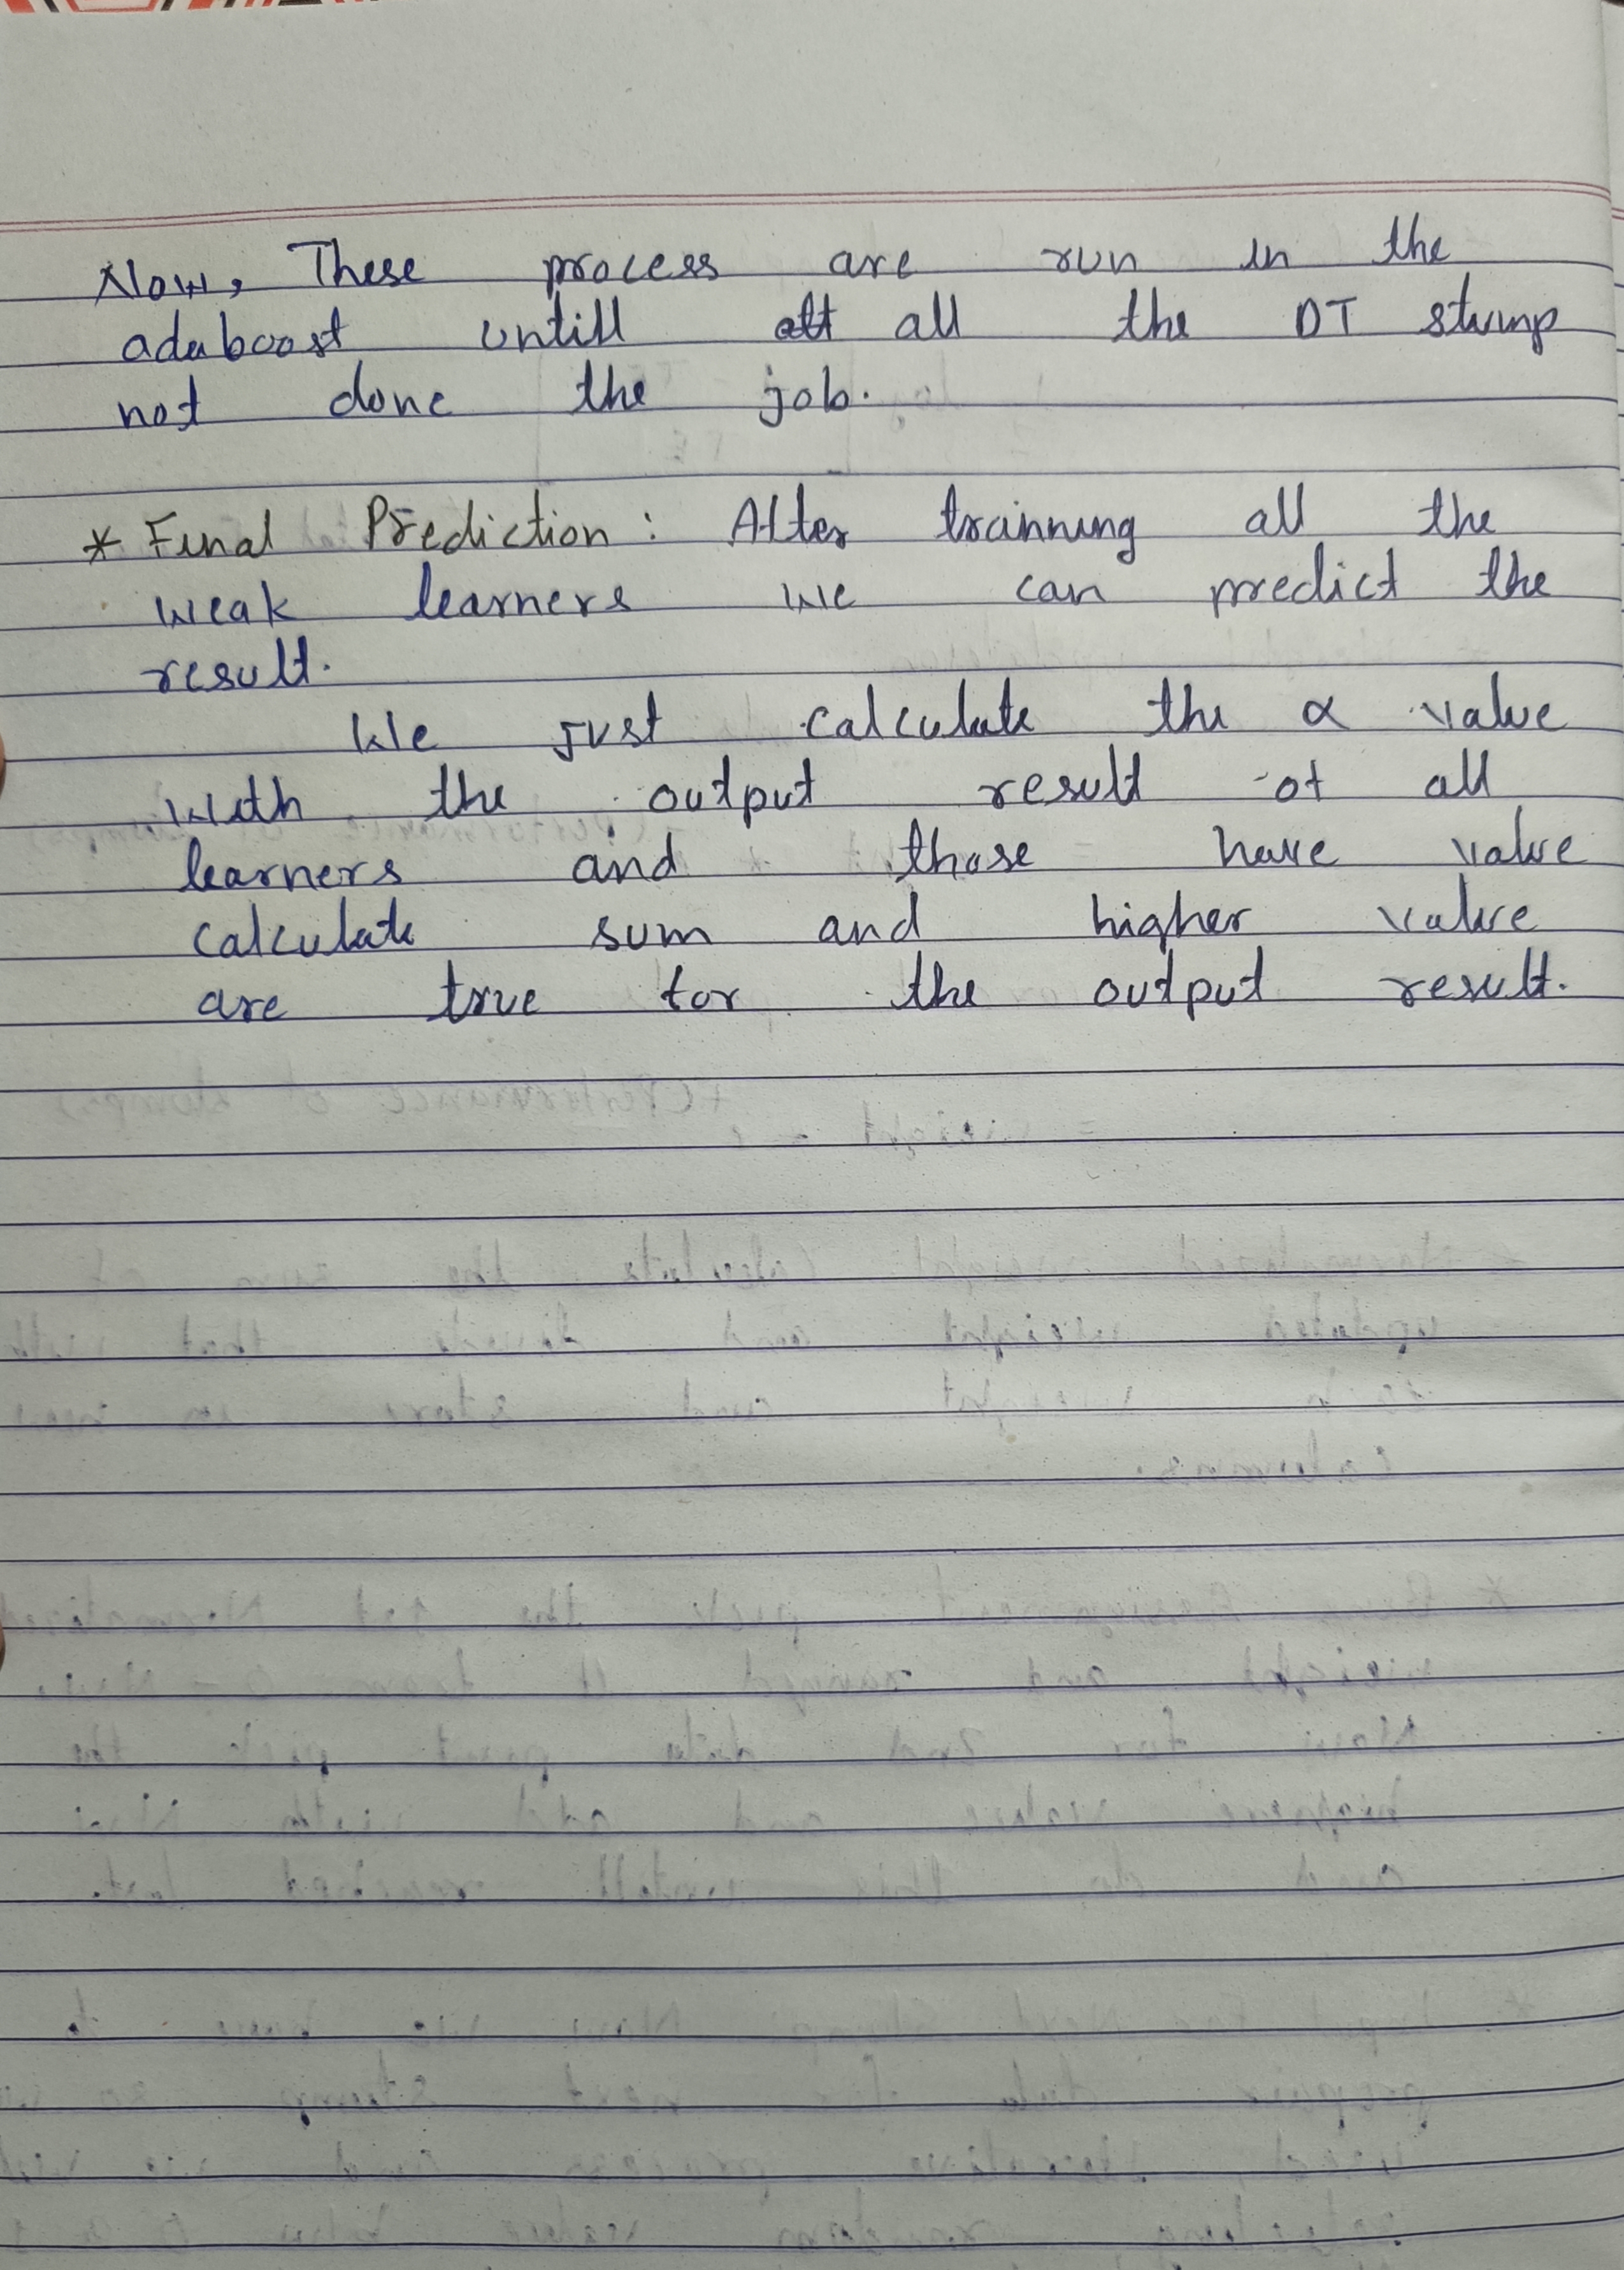 Now, These process are run in the
adaboost untill all the DT stump
not done the job.
* Final Prediction : After trainning all the
weak learners we can predict the
result.
We just calculate the α value
with the output result of all
learners and those have value
calculate sum and higher value
are true for the output result.